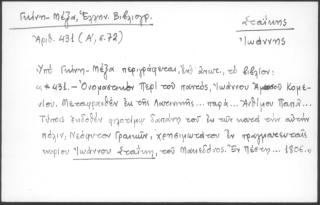 Γκίνη-Μέξα, Ἑλλην. Βιβλιογρ.
Σταΐκης
Ἀριθ. 431 (Α', σ. 72)
Ἰωάννης
Ὑπό Γκίνη-Μέξα περιγράφεται, τό βιβλίον:
«*431.- Ὀνομαστικόν Περί τοῦ παντός, Ἰωάννου Ἀμοσοῦ Κομε-
νίου. Μεταφρασθέν ἐκ τῆς Λατινικῆς... παρά... Ἀνθίμου Παπᾶ...
Τύποις ἐκδοθέν φιλοτίμῳ δαπάνῃ τοῦ ἐκ τῶν κατά τήν αὐτήν
πόλιν, Νεόφυτον Γραικῶν, χρησιμωτάτου ἐν πραγματευταῖς
κυρίου Ἰωάννου Σταΐκη, τοῦ Μακεδόνος. Ἐν Πέστῃ... 1806.»